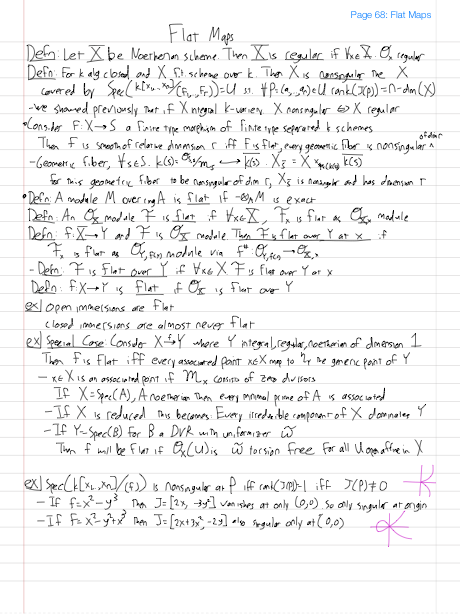 Page 68: Flat Maps
Flat Maps
Defn: Let X be Noetherian scheme. Then X is regular if ∀x∈X O_x regular
Defn: For k alg closed and X f.t. scheme over k. Then X is nonsingular iff X
covered by Spec(k[x_1,...,x_n]/(F_1,...,F_r)) = U s.t. ∀P=(a_1,...,a_n)∈U rank(J(P))=n-dim(X)
- we showed previously that if X integral k-variety X nonsingular ⇔ X regular
• Consider f: X→S a finite type morphism of finite type separated k schemes
of dim r
Then f is smooth of relative dimension r if f is flat, every geometric fiber is nonsingular ^
- Geometric fiber, ∀s∈S. k(s)= O_{S,s}/m_s ↪ \overline{k(s)}. X_{\bar{s}} = X ×_{Spec(k(s))} \overline{k(s)}
for this geometric fiber to be nonsingular of dim r, X_{\bar{s}} is nonsingular and has dimension r
• Defn: A module M over ring A is flat if -⊗_A M is exact
Defn: An O_X module F is flat if ∀x∈X, F_x is flat as O_{X,x} module
Defn: f: X→Y and F is O_X module. Then F is flat over Y at x if
F_x is flat as O_{Y,f(x)} module via f^#: O_{Y,f(x)} → O_{X,x}
- Defn: F is flat over Y if ∀x∈X F is flat over Y at x
Defn: f: X→Y is flat if O_X is flat over Y
ex] open immersions are flat
closed immersions are almost never flat
ex] Special Case: Consider X→^f Y where Y integral, regular, noetherian of dimension 1
Then f is flat iff every associated point x∈X map to η_Y the generic point of Y
- x∈X is an associated point if m_x consists of zero divisors
If X=Spec(A), A noetherian then every minimal prime of A is associated
- If X is reduced this becomes: Every irreducible component of X dominates Y
- If Y=Spec(B) for B a DVR with uniformizer ω̃
Then f will be flat if O_X(U) is ω̃ torsion free for all U open affine in X
ex] Spec(k[x_1,...,x_n]/(f)) is nonsingular at P iff rank(J(P))=1 iff J(P)≠0
- If f=x²-y³ Then J=[2x, -3y²] vanishes at only (0,0) so only singular at origin
- If f=x²-y²+x³ Then J=[2x+3x², -2y] also singular only at (0,0)